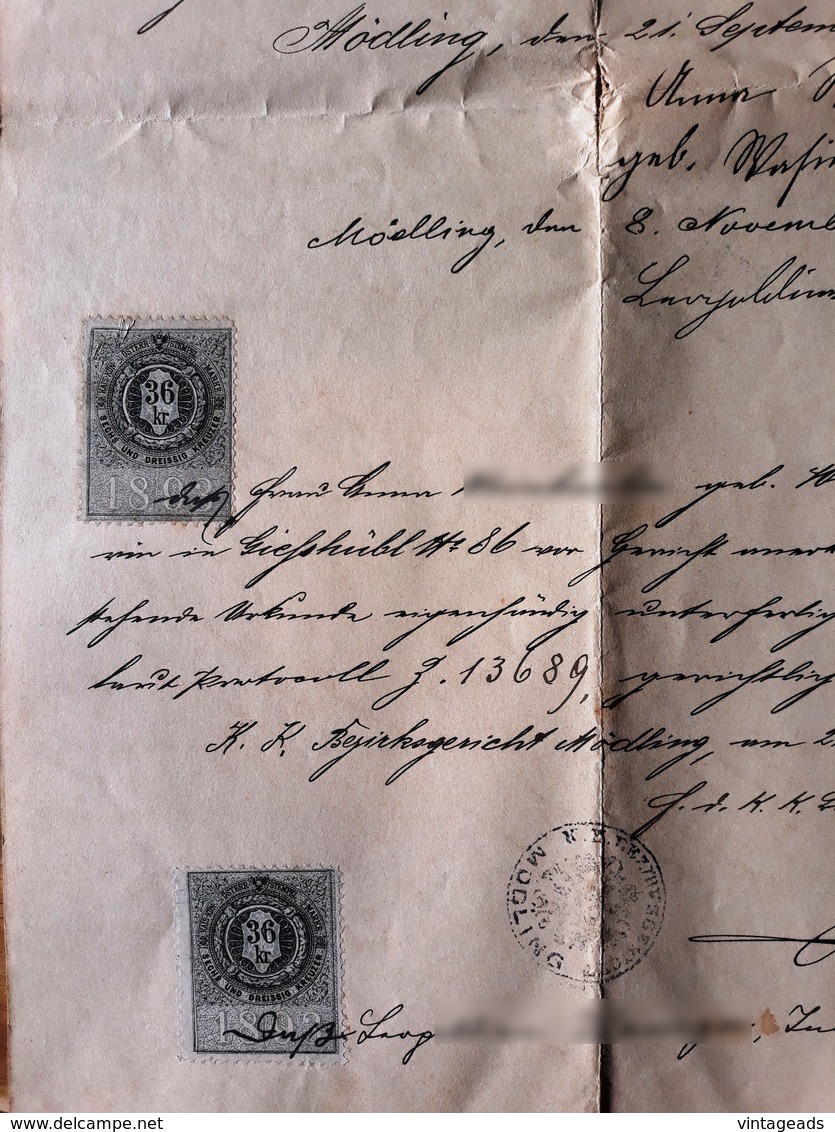 Mödling, den 21. Septem
Anna
geb. Wasi
Mödling, den 8. Novemb
Leopoldin
KAIS. KÖN. ÖSTERR. STEMPEL MARKE
36
kr.
SECHS UND DREISSIG KREUZER
1893
daß Frau Anna geb. W
rin in Gießhübl No 86 vor Gericht aner
stehende Urkunde eigenhändig unterfertig
laut Protocoll Z. 13689, gerichtlich
K. K. Bezirksgericht Mödling, am 2
F. d. K. K. B
K. K. BEZIRKSGERICHT
MÖDLING
KAIS. KÖN. ÖSTERR. STEMPEL MARKE
36
kr.
SECHS UND DREISSIG KREUZER
1893
Daß Leop
www.delcampe.net
vintageads